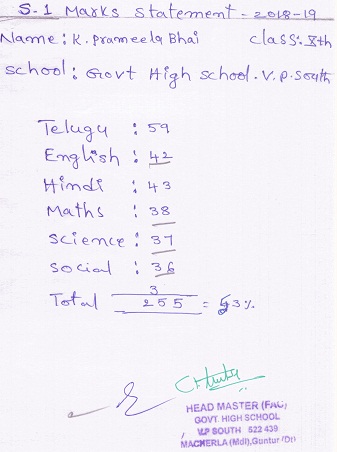 S.1 Marks Statement - 2018-19
Name: K. Prameela Bhai class: Xth
School: Govt High School. V.P. South
Telugu : 59
English : 42
Hindi : 43
Maths : 38
Science : 37
Social : 36
3
Total 255 = 53%
HEAD MASTER (FAC)
GOVT. HIGH SCHOOL
V.P SOUTH 522 439
MACHERLA (Mdl), Guntur (Dt)